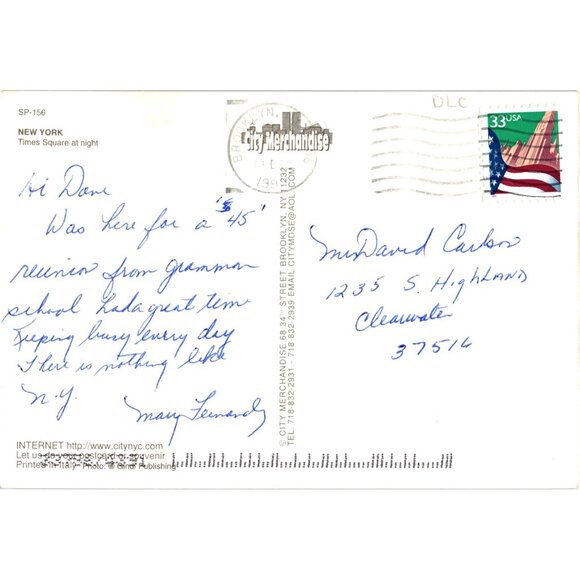 SP-156
NEW YORK
Times Square at night
Hi Dave
Was here for a '45'
reunion from grammar
school had a great time
Keeping busy every day
There is nothing like
N.Y.
Mary
INTERNET http://www.citynyc.com
Let us do your postcard or souvenir
Printed in Italy Photo: © Gindi Publishing
BROOKLYN,
199
City Merchandise
© CITY MERCHANDISE 68 34TH STREET BROOKLYN, NY 11232
TEL 718-832-2931 - 718 832-2939 EMAIL CITYMDSE@AOL.COM
DLC
33 USA
David Carlson
1235 S. HIGHLAND
Clearwater
37516